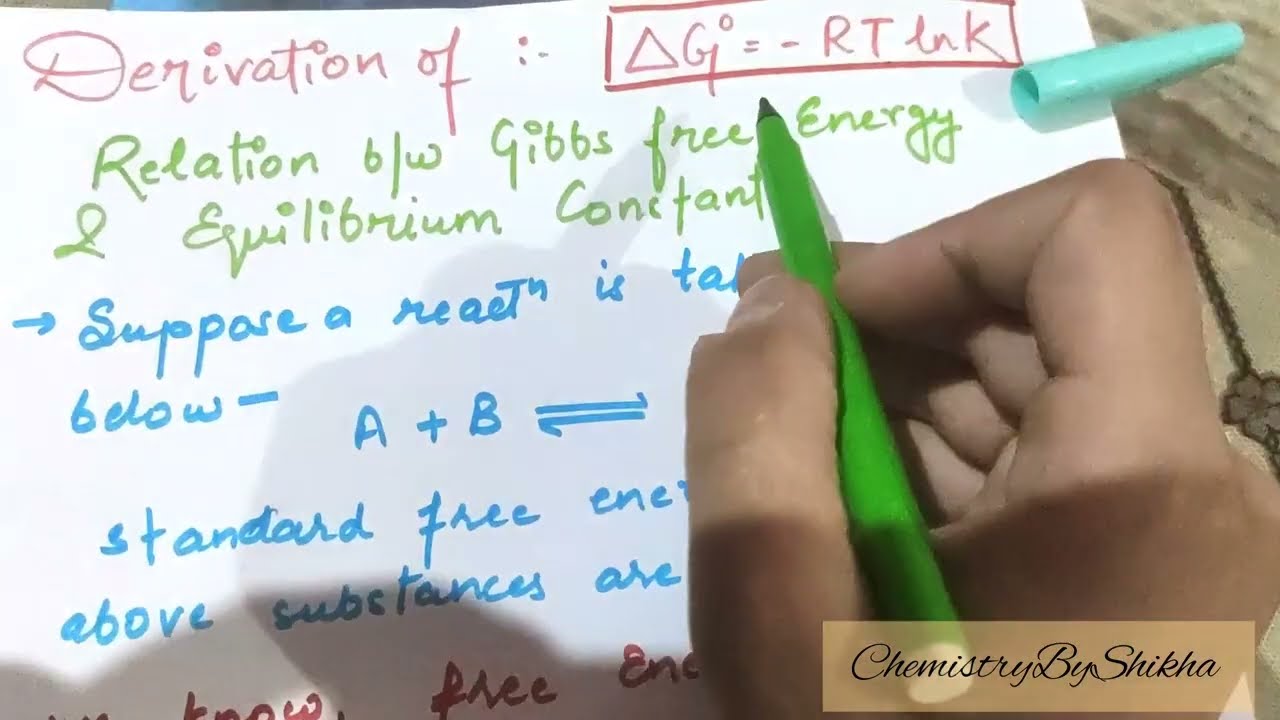 Derivation of :- ΔG° = - RT lnK
Relation b/w Gibbs free Energy
& Equilibrium Constant
→ Suppose a reactⁿ is
below -
A + B ⇌
standard free
above substances are
know, free
ChemistryByShikha